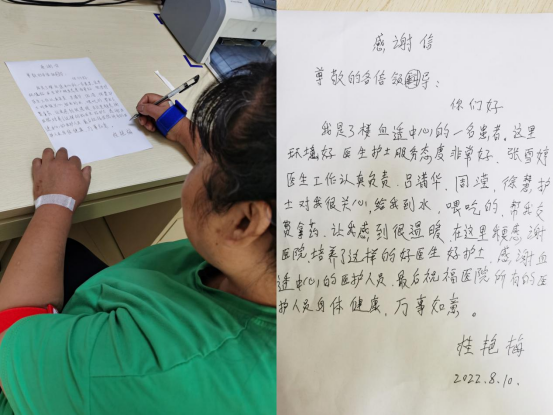 感谢信
尊敬的各位领导：
你们好
我是3楼血透中心的一名患者，这里
环境好医生护士服务态度非常好，张雪婷
医生工作认真负责，吕清华，周滢，徐慧护
士对我很关心给我到水，喂吃的，帮我交
费拿药，让我感到很温暖，在这里我感谢
医院，培养了这样的好医生好护士，感谢血
透中心的医护人员，最后祝福医院所有的医
护人员身体健康，万事如意。
桂艳梅
2022.8.10.